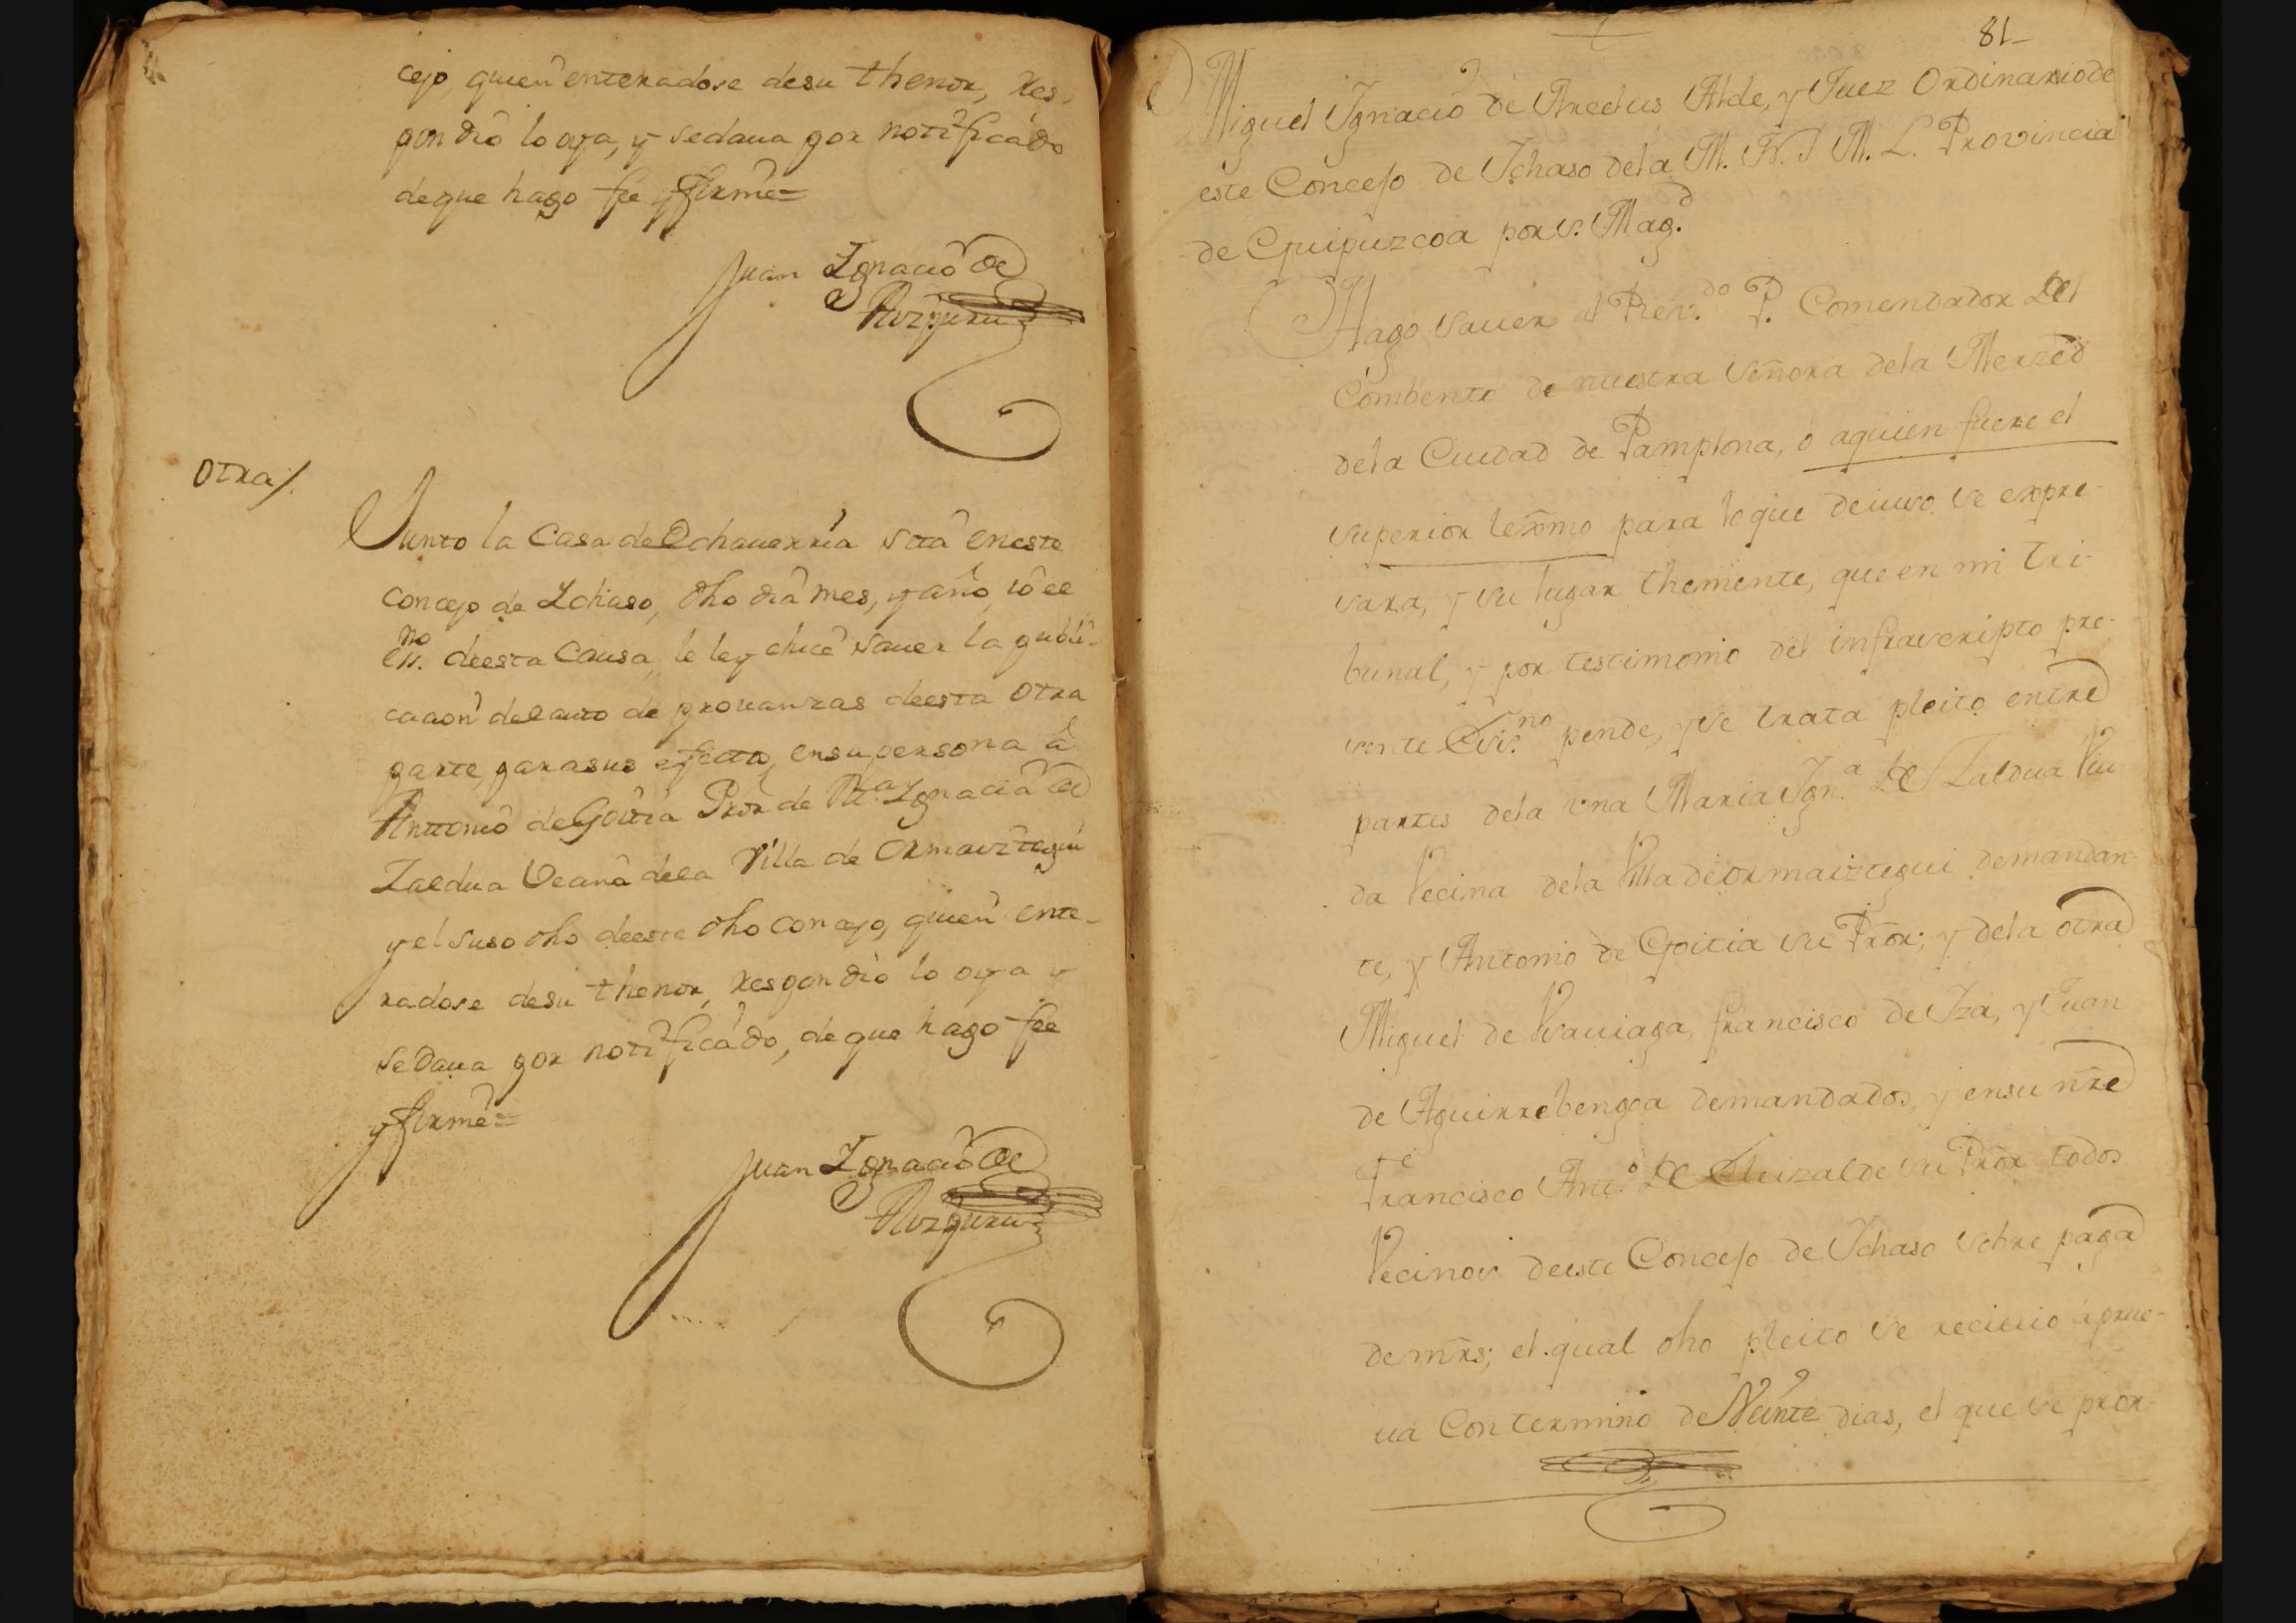 cejo, quien enteradose desu thenor, Res-
pondió lo oya, y sedaua por notificado
deque hago fee y firmé=
Juan Ignacio de
Aizpuru
Otra/.
Junto la Casa de Echauerria sita en este
concejo de Ichaso, dho dia mes, y año, io el
ess.no deesta Causa, le ley ehice sauer la publi-
cacion del auto de prouanzas deesta otra
parte, para sus efectos, ensu persona á
Anttonio de Goitia Pror de M.a Ignacia de
Zaldua Vecina dela Villa de Ormaiztegui
y el suso dho deeste dho concejo, quien ente-
radose desu thenor, respondió lo oya y
sedaua por notificado, deque hago fee
y firmé=
Juan Ignacio de
Aizpuru
81-
Miguel Ignacio de Arectus Alde, y Juez Ordinario de
este Concejo de Ichaso dela M. N. I M. L. Provincia
de Guipuzcoa por s. Mag.d
Hago sauer al Rev.do P. Comendador del
Combento de nuestra señora dela Merzed
dela Ciudad de Pamplona, ó aquien fuere el
superior lexmo para loque deiuso se expre-
sara, y su lugar theniente, que en mi tri-
bunal, y por testimonio del infrascripto pre-
sente Ess.no pende, y se trata pleito entre
partes dela una Maria Ign.a de Zaldua Viu
da Vecina dela Villa de ormaiztegui demandan-
te, y Antonio de Goitia su Pror; y dela otra
Miguel de francisco de Iza, y Juan
de Aguirrebengoa demandados, y ensu nre
Francisco Ant.o de Eluizalde su Pror todos
Vecinos deeste Concejo de Ichaso sobre paga
de mrs; el qual dho pleito se reciuio á prue-
ua Con termino de Veinte dias, el que se pror-